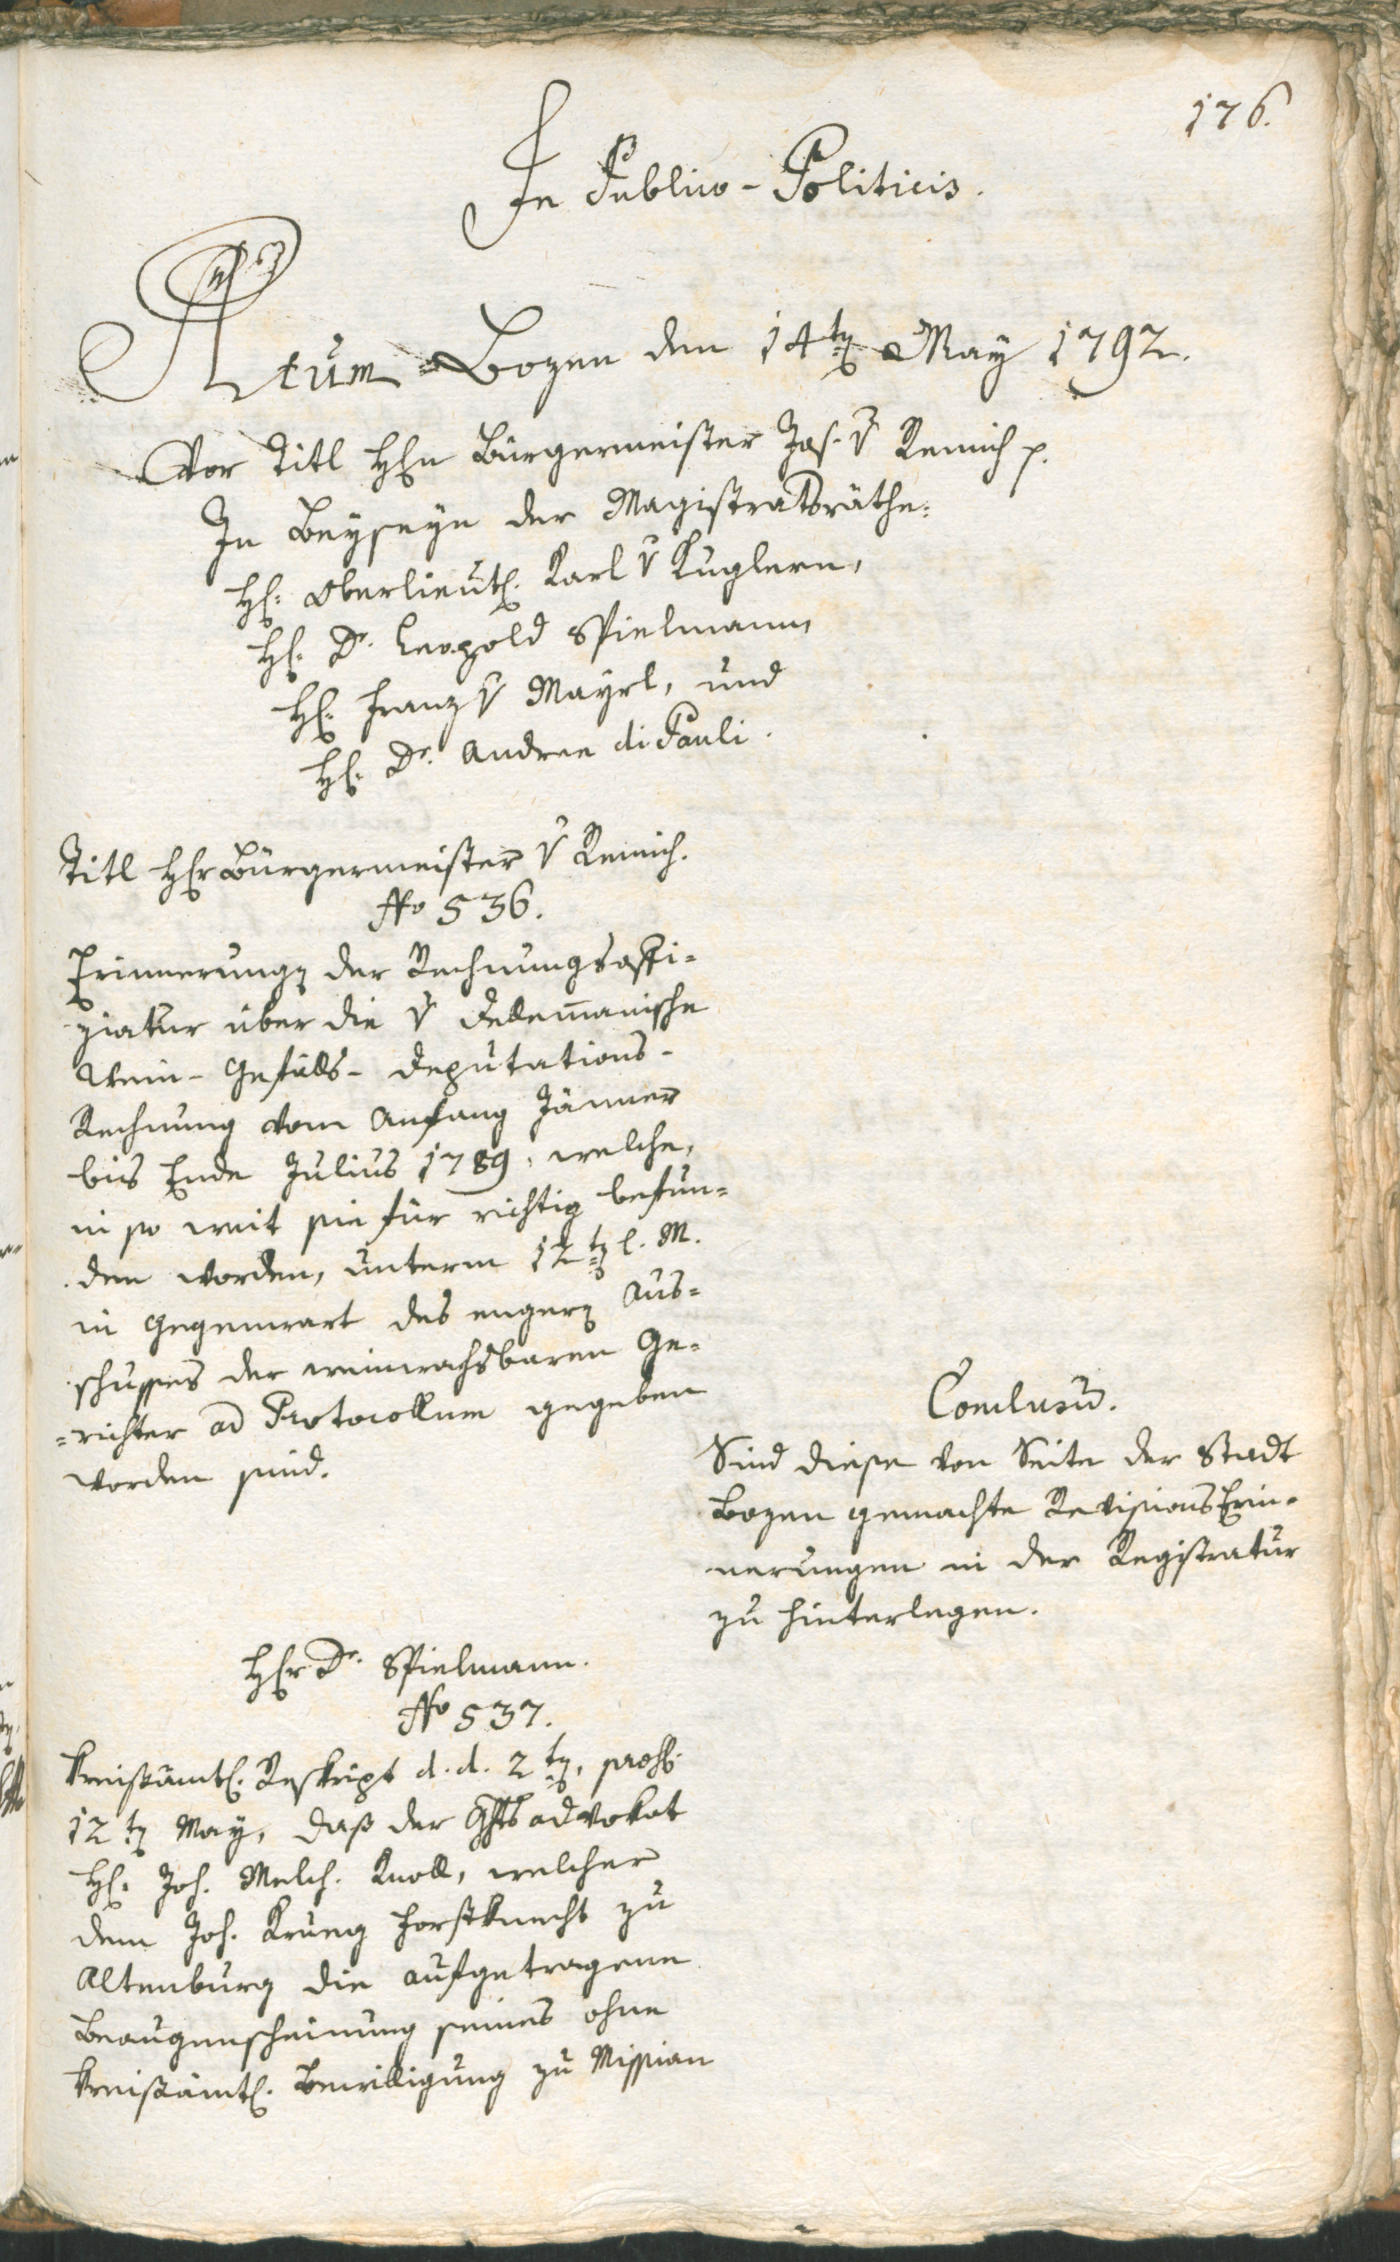 176.
In Publico-Politicis.
Actum Bozen den 14ten May 1792.
Vor Titl Hℓn Bürgermeister Jos. v Remich p.
In Beyseyn der Magistratsräthe:
Hℓ. Oberlieutℓ. Karl v Kuglern,
Hℓ. Dr. Leopold Spielmann,
Hℓ. Franz v Mayrl, und
Hℓ. Dr. Andree di Pauli.
Titl Hℓr Bürgermeister v Remich.
No 536.
Erinnerungen der Rechnungsoffi-
ziatur über die v Dellemanische
Wein-Gefälls-Deputations-
Rechnung vom Anfang Jänner
bis Ende Julius 1789, welche,
in so weit sie für richtig befun-
den worden, unterm 12ten l. M.
in Gegenwart des engern Aus-
schusses der weinwachsbaren Ge-
=richter ad Protocollum gegeben
worden sind.
Conclusum.
Sind diese von Seite der Stadt
Bozen gemachte Revisions Erin-
nerungen in der Registratur
zu hinterlegen.
Hℓr Dr. Spielmann.
No 537.
Kreißämtℓ. Reskript d. d. 2ten,
12ten May, daß der Advokat
Hℓ. Joh. Melch. Knoll, welcher
dem Joh. Krueg Forstknecht zu
Altenburg die aufgetragene
Beaugenscheinung seines ohne
kreißämtℓ. Bewilligung zu Missian